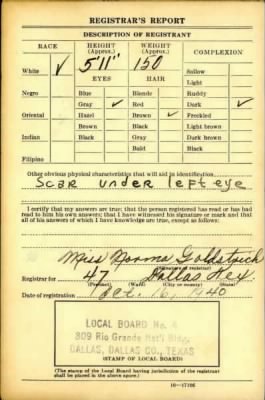 REGISTRAR'S REPORT
DESCRIPTION OF REGISTRANT
RACE HEIGHT (Approx.) WEIGHT (Approx.) COMPLEXION
White ✓ 5'11" 150 Sallow
EYES HAIR Light
Negro Blue Blonde Ruddy
Gray ✓ Red Dark ✓
Oriental Hazel Brown ✓ Freckled
Brown Black Light brown
Indian Black Gray Dark brown
Bald Black
Filipino
Other obvious physical characteristics that will aid in identification
Scar under left eye
I certify that my answers are true; that the person registered has read or has had
read to him his own answers; that I have witnessed his signature or mark and that
all of his answers of which I have knowledge are true, except as follows:
Miss Norma
(Signature of registrar)
Registrar for 47 Dallas Tex
(Precinct) (Ward) (City or county) (State)
Date of registration Oct. 16, 1940
LOCAL BOARD No. 4
809 Rio Grande Nat'l Bldg.
DALLAS, DALLAS CO., TEXAS
(STAMP OF LOCAL BOARD)
(The stamp of the Local Board having jurisdiction of the registrant
shall be placed in the above space.)